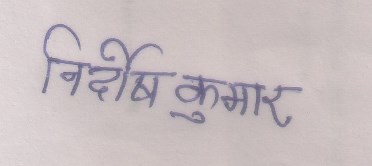 निर्दोष कुमार